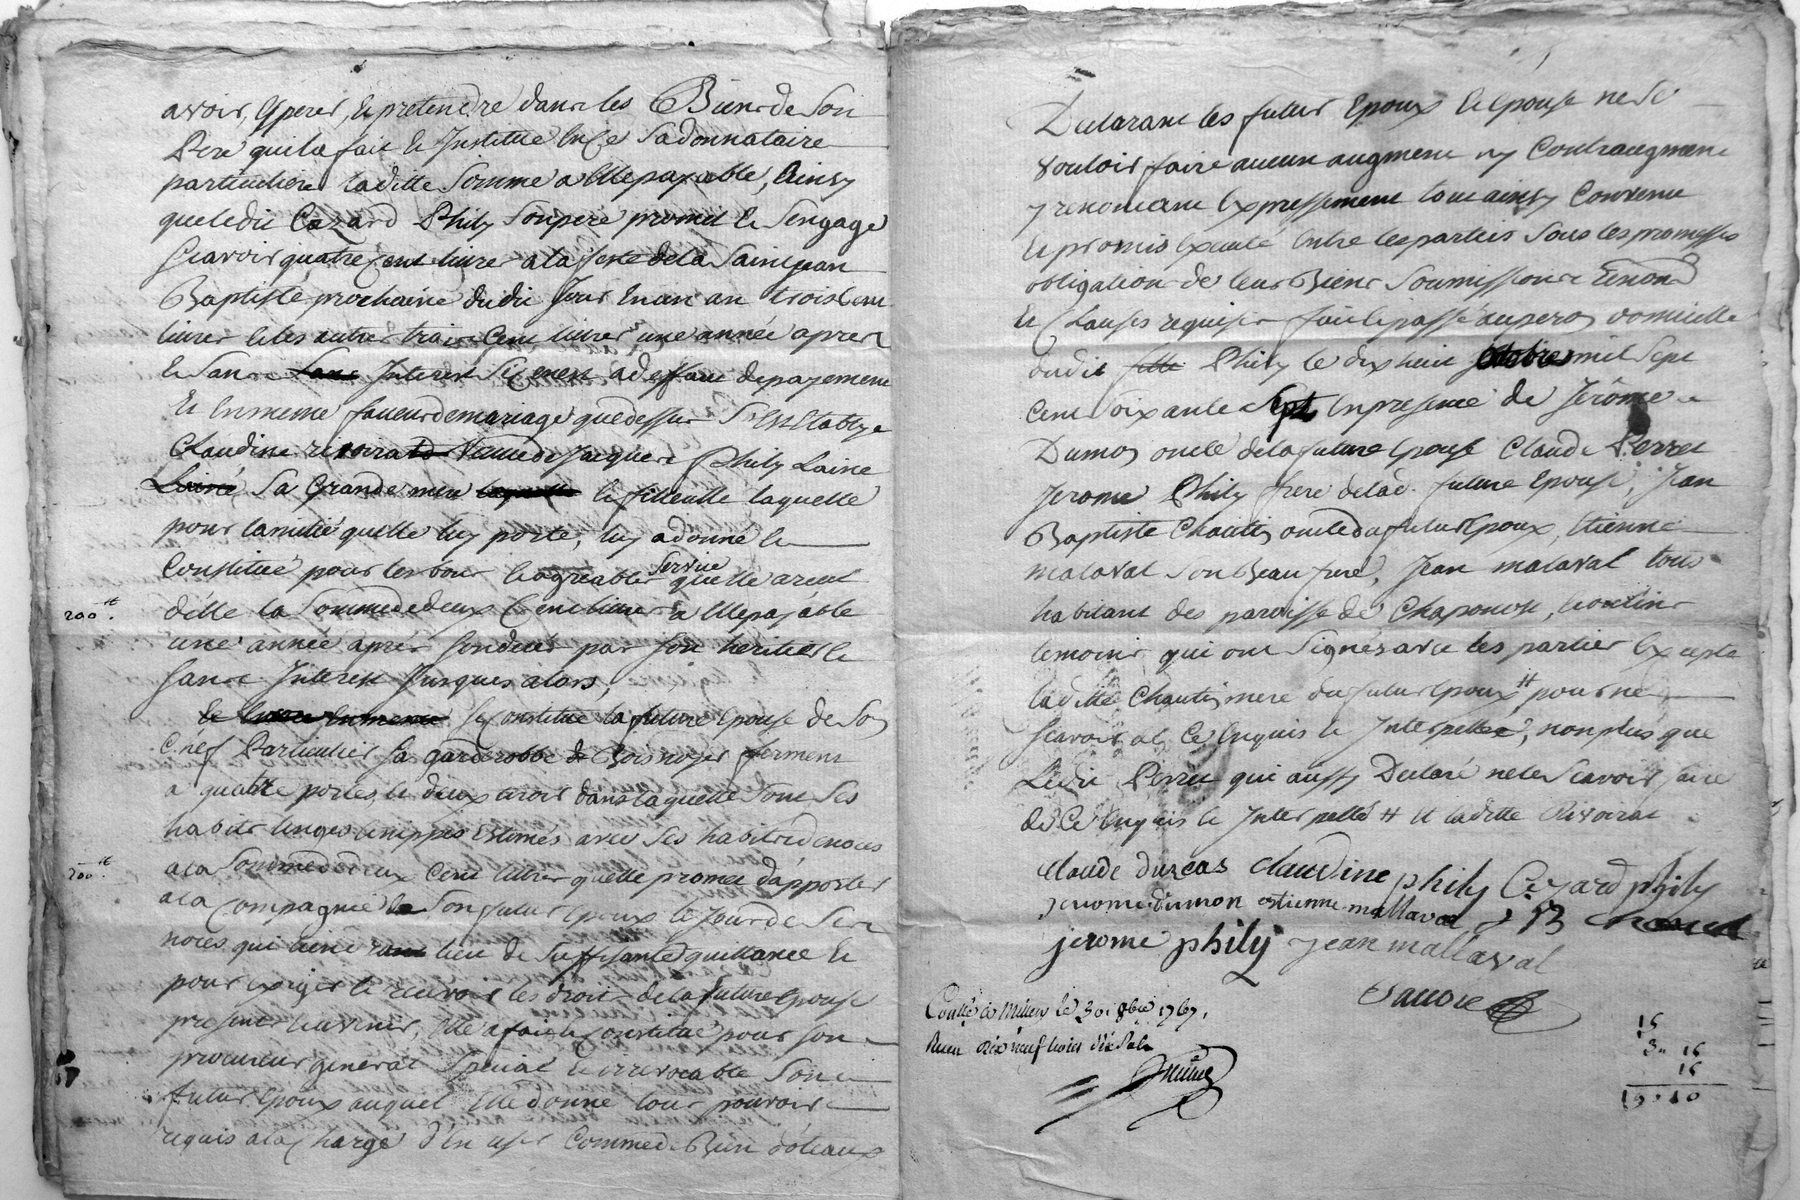 avoir, Esperer, et pretendre dans les Biens de Son
Pere qui la fait et Institue En Ce Sa donnataire
particuliere laditte Somme a Elle payable, Ainsy
que ledit Cezard Phily Son pere promet et Sengage
Scavoir quatre Cent livres a la feste de la Saint jean
Baptiste prochaine dudit Jour En un an trois Cent
livres et les autres trois Cent livres une année apres
et Sans Sans Interest Si ce nest a deffaut de payement
Et En meme faveur de mariage que dessus S'est Etablye
Claudine revoirat Veuve de Jacques Phily Laine
Laine Sa Grande mere laquelle et filleulle laquelle
pour lamitié quelle luy porte, luy a donné et
Constitué pour les bons et agreables Service quelle a reçut
delle la Somme de deux Cent livres a Elle payable
200.lt
une année apres Son deces par Son heritier et
Sans Interest Jusques alors,
Se Constitue la future Epouse de Son
Chef Particulier Sa garderobbe de Bois noyer fermant
a quatre portes, et deux tiroir dans laquelle Sont Ses
habits linges et nippes Estimés avec Ses habits de noces
a la Somme de deux Cent livres quelle promet d'apporter
200.lt
a la Compagnie de Son futur Epoux le Jour de Ses
noces qui tiendra lieu de Suffisante quittance et
pour Exiger et recevoir les droits de la future Epouse
presents et avenir, Elle a fait et Constitué pour Son
procureur general Special et irrevocable Son
futur Epoux auquel Elle donne tous pouvoir
requis a la Charge d'En user Comme de Bien dotaux
Declarant les futurs Epoux et Epouse ne Se
Vouloir faire aucun augment ny Contraugment
y renoncant Expressement tout ainsy Convenu
et promis Executé Entre les parties Sous les promesses
obligation de leurs Biens Soumissions Renond
et Clauses requises fait et passé au peron domicille
dudit Phily le dix huit octobre mil Sept
Cent Soixante Sept En presence de Jérôme
Dumon oncle de la future Epouse Claude Perret
Jerome Phily frere de lad. future Epouse, Jean
Baptiste Chautin oncle du futur Epoux, Etienne
malaval Son Beau frere, Jean malaval tous
habitant des paroisse de Chaponost, et oullins
temoins qui ont Signés avec les parties Excepté
laditte Chautin mere du futur Epoux # pour ne
Scavoir de Ce Enquis et Interpellee, non plus que
Ledit Perret qui aussy Declaré ne le Scavoir faire
de Ce Enquis et Interpellé # Et laditte Rivoirat
claude duzeas claudine phily Cezard phily
jerome dumon estienne mallaval J B
jerome phily jean mallaval
Collé a Millery le 30 8bre 1767,
Reçu dix neuf livres dix Sols
15
3. 15
15
19. 10